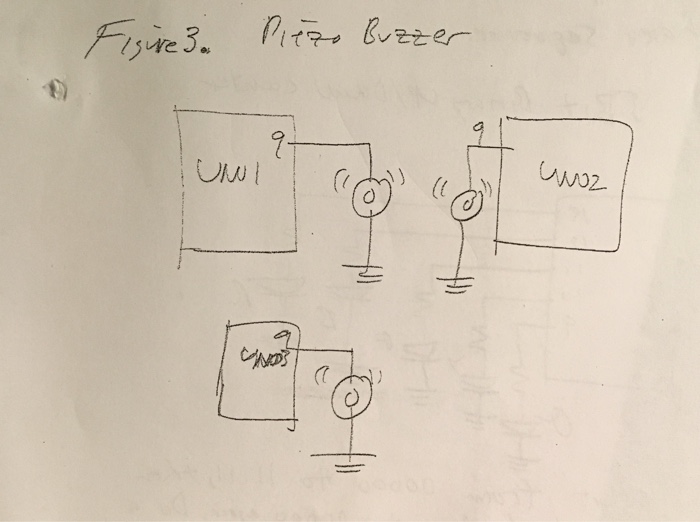 Figure 3. Piezo Buzzer
9
UNO1
9
UNO2
9
UNO3